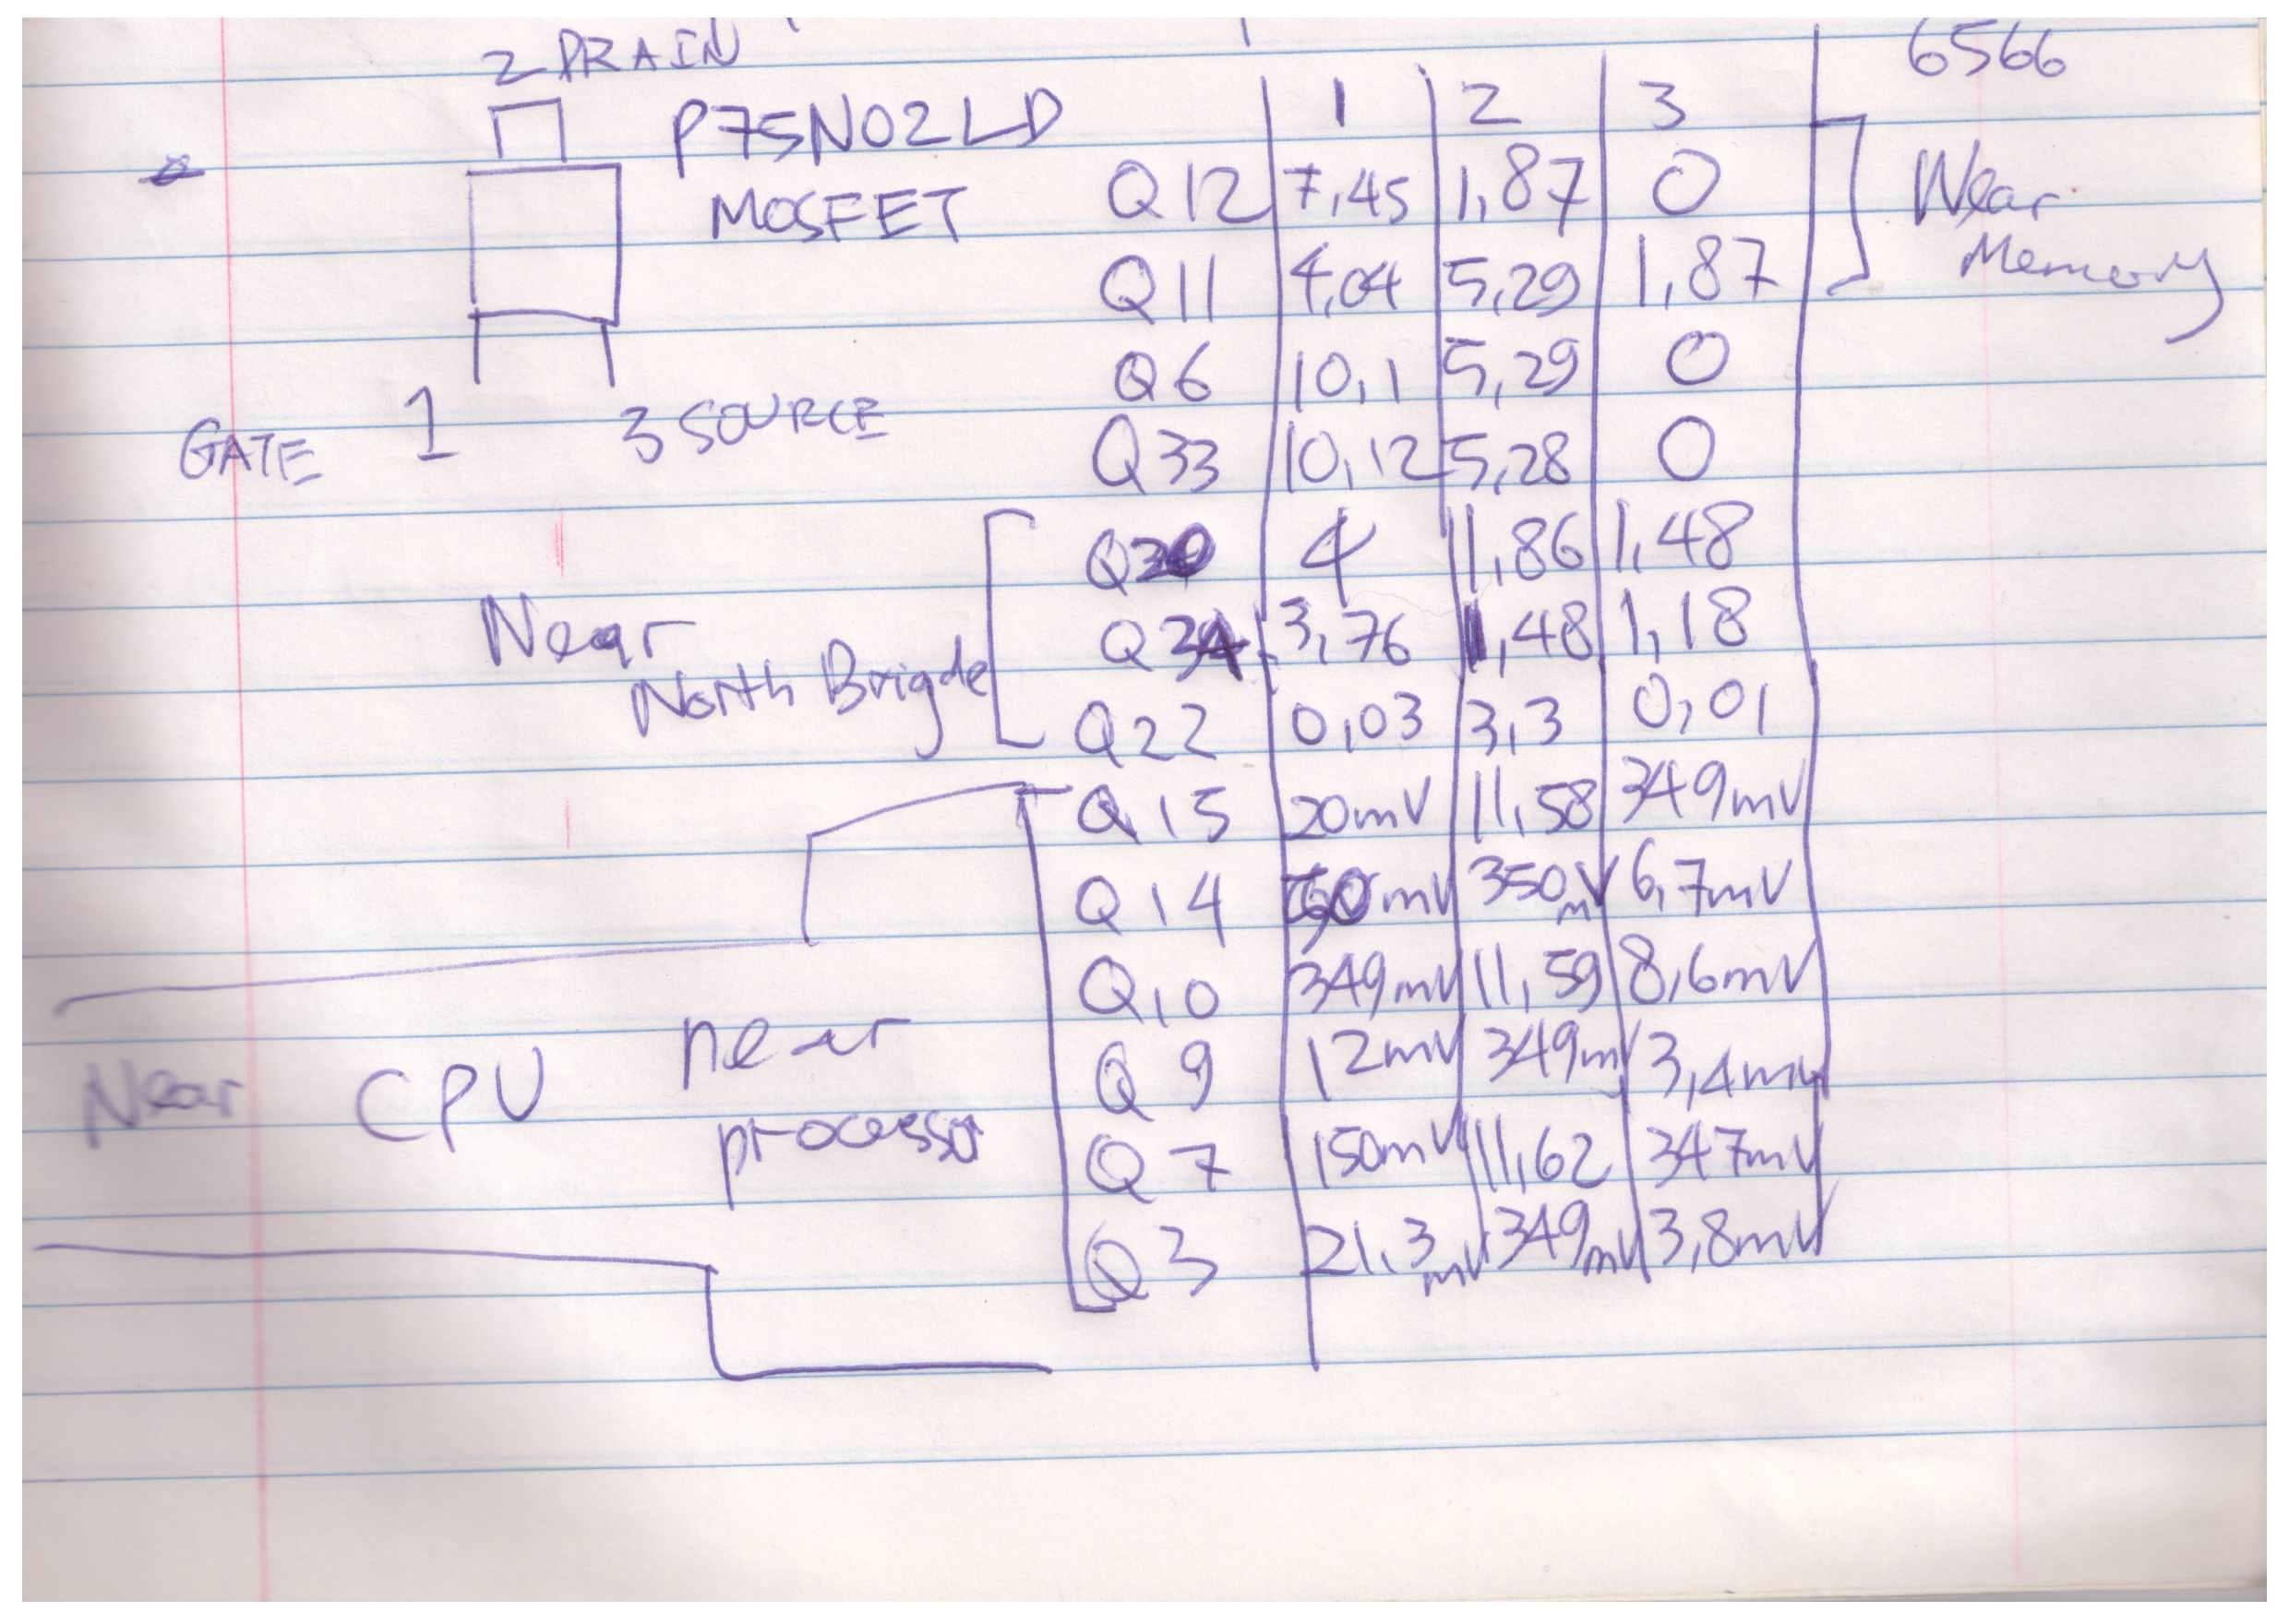 2 DRAIN
P75N02LD
MOSFET
GATE 1 3 SOURCE
6566
1 2 3
Q12 7,45 1,87 0
Near
Memory
Q11 4,04 5,29 1,87
Q6 10,1 5,29 0
Q33 10,12 5,28 0
Near
North Brigde
4 1,86 1,48
3,76 1,48 1,18
Q22 0,03 3,3 0,01
Near CPU
near
processor
Q15 20mV 11,58 349mV
Q14 mV 350mV 6,7mV
Q10 349mV 11,59 8,6mV
Q9 12mV 349mV 3,4mV
Q7 150mV 11,62 347mV
Q3 21,3mV 349mV 3,8mV